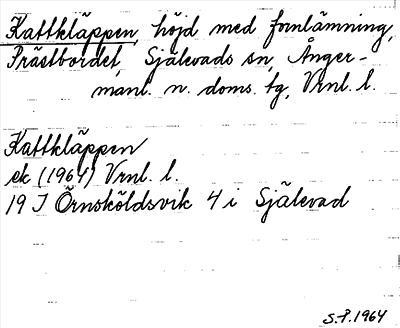 Kattkläppen, höjd med fornlämning,
Prästbordet, Själevads sn, Ånger-
manl. n. doms. tg, Vrnl. l.
Kattkläppen
ek (1964) Vrnl. l.
19 J Örnsköldsvik 4 i Själevad
S.P. 1964